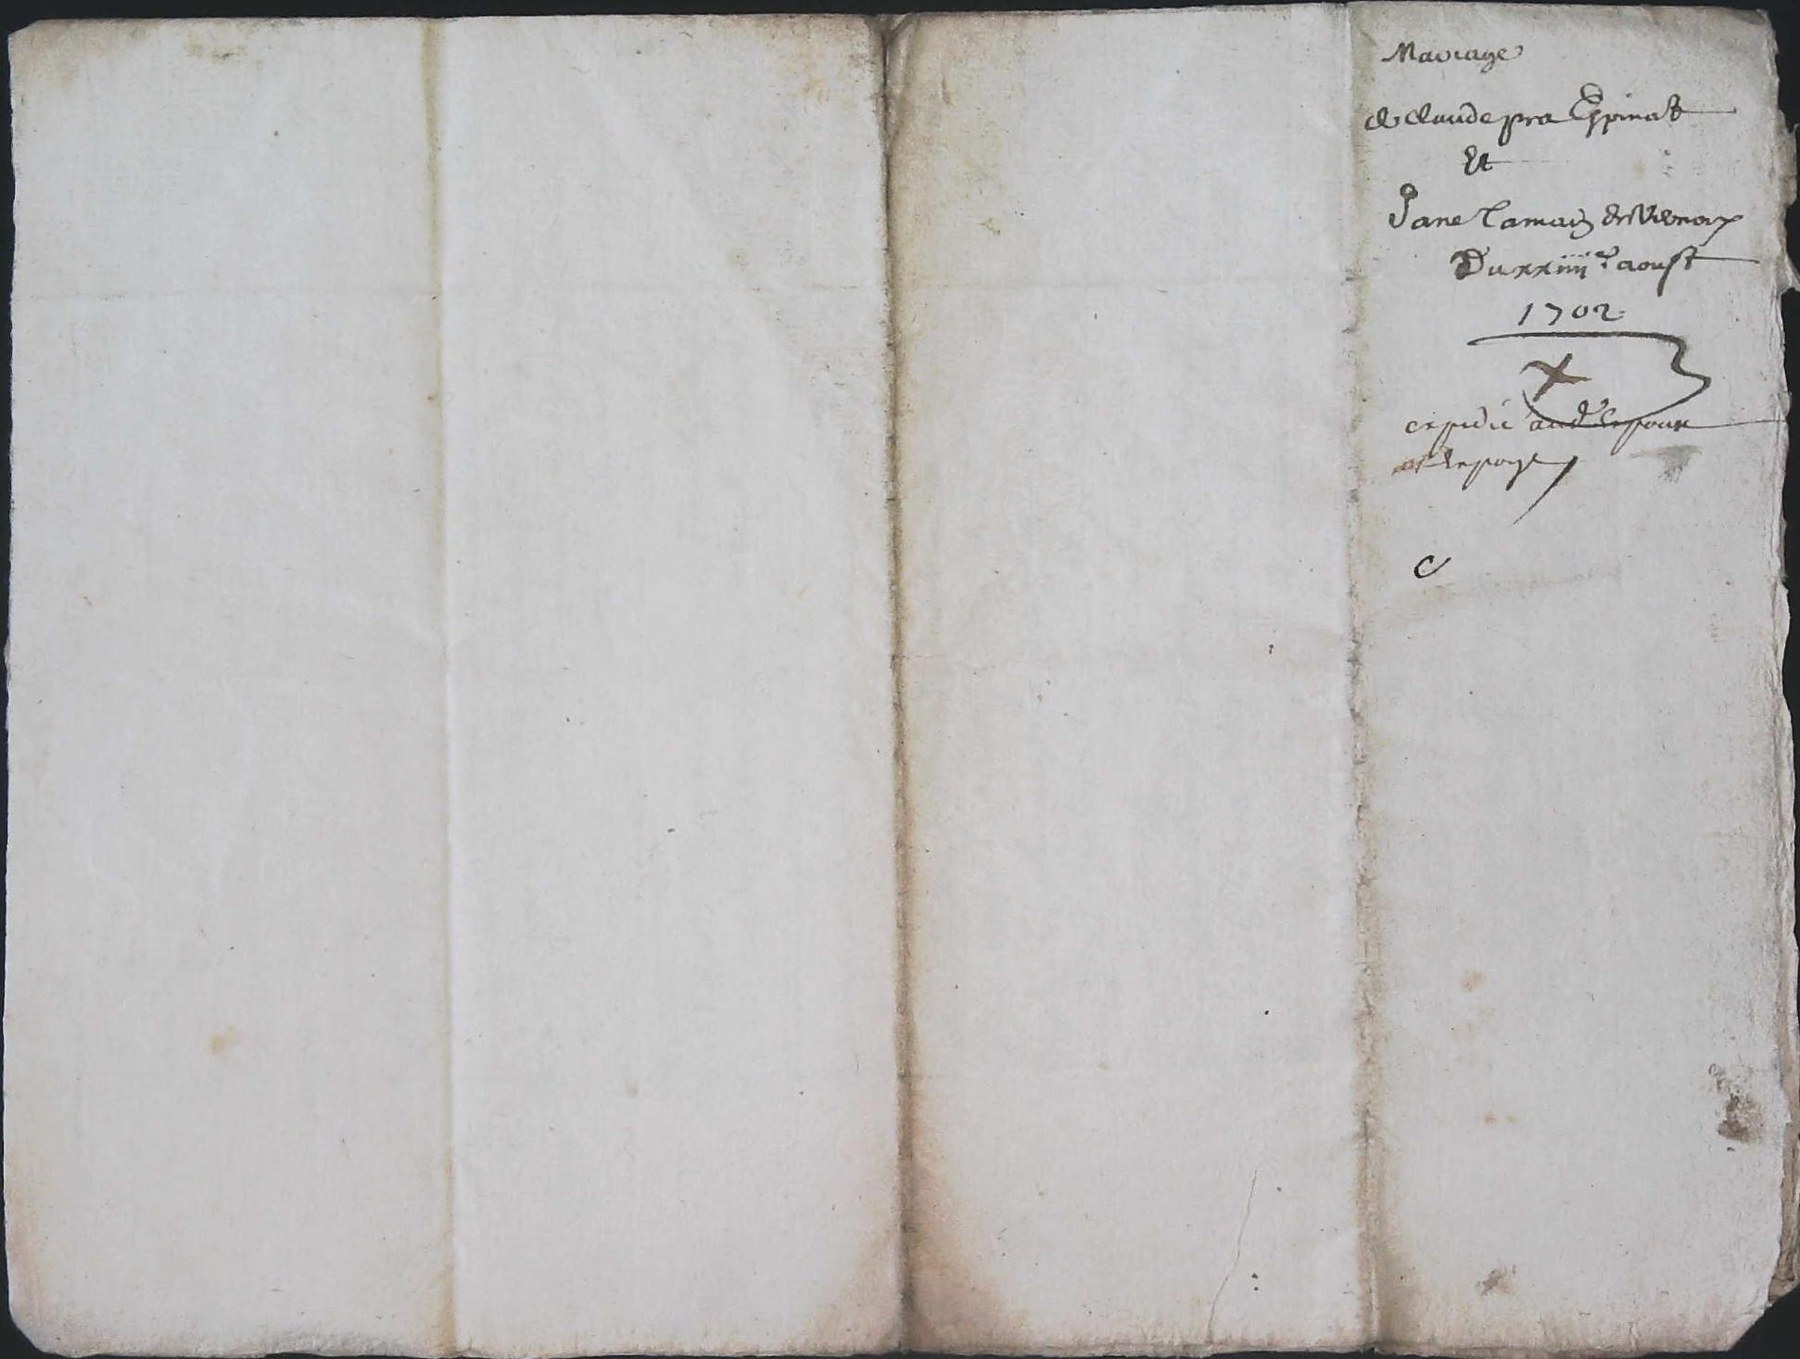 Mariage
de claude pra Espinat
Et
Jane Lamaiz de
Du xxiiii.e aoust
1702
x
expédié aud espoux
et en paye
c